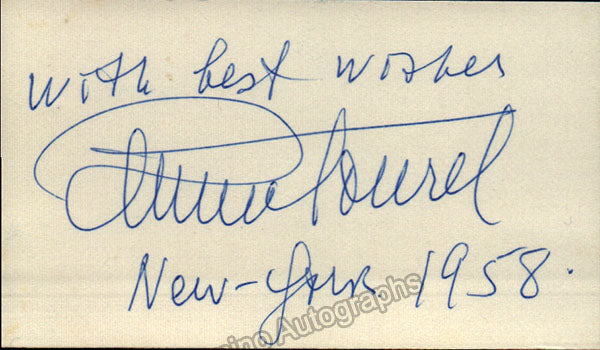 With best wishes
Jennie Tourel
New-York. 1958.
ino Autographs